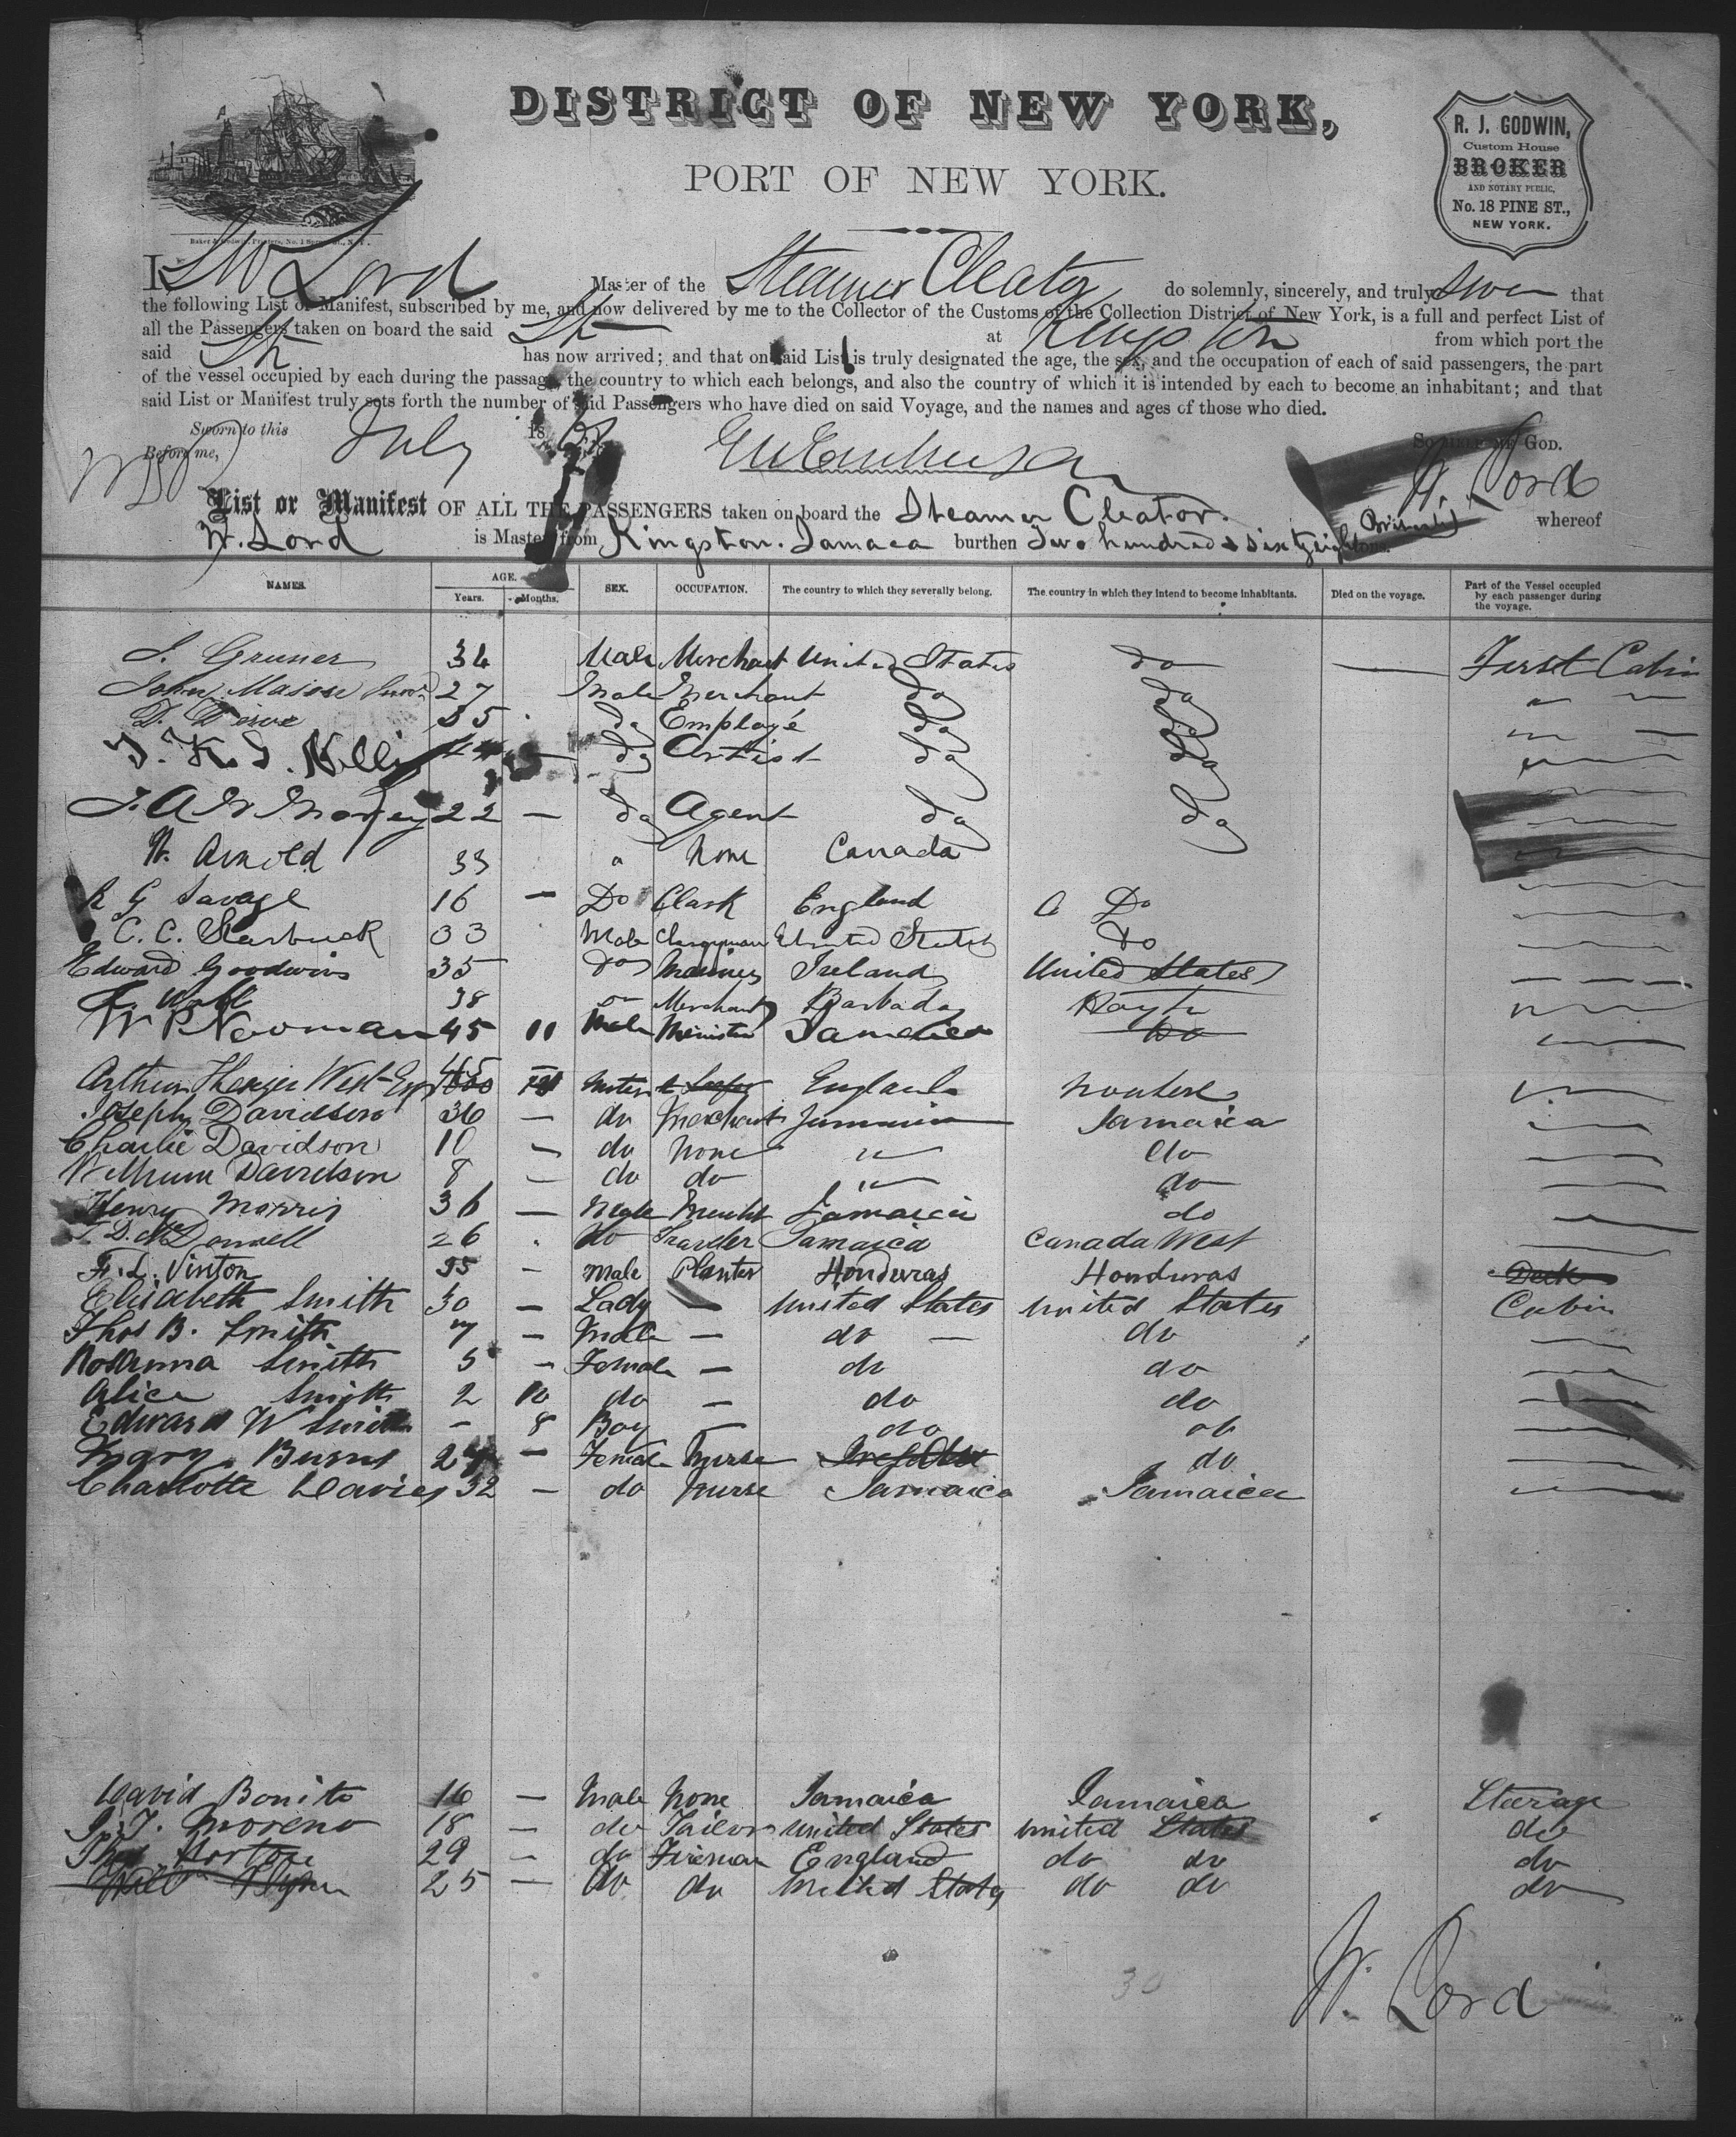 DISTRICT OF NEW YORK,
PORT OF NEW YORK.
R. J. GODWIN,
Custom House
BROKER
AND NOTARY PUBLIC,
No. 18 PINE ST.,
NEW YORK.
I, W Lord Master of the Steamer Cleator do solemnly, sincerely, and truly that
the following List or Manifest, subscribed by me, and now delivered by me to the Collector of the Customs of the Collection District of New York, is a full and perfect List of
all the Passengers taken on board the said St at Kingston from which port the
said St has now arrived; and that on said List is truly designated the age, the sex, and the occupation of each of said passengers, the part
of the vessel occupied by each during the passage, the country to which each belongs, and also the country of which it is intended by each to become an inhabitant; and that
said List or Manifest truly sets forth the number of said Passengers who have died on said Voyage, and the names and ages of those who died.
Sworn to this July 18 So help me God.
Before me, W. Lord
List or Manifest OF ALL THE PASSENGERS taken on board the Steamer Cleator. (British) whereof
W. Lord is Master, from Kingston. Jamaca burthen Two hundred & Sixty eight tons.
NAMES. AGE. Years. Months. SEX. OCCUPATION. The country to which they severally belong. The country in which they intend to become inhabitants. Died on the voyage. Part of the Vessel occupied by each passenger during the voyage.
J. Gruner 34 Male Merchant United States do — First Cabin
John Mason 27 Male Merchant do do " "
D. 35 do Employé do do " "
T. K. J. 44 — do Artist do do "
J. A. 22 — do Agent do do
W. Arnold 33 " None Canada
R G Savage 16 — Do Clark England Do
C. C. Starbuck 33 Male Clergyman United States Do
Edward Goodwin 35 Do Mariner Ireland United States
38 Merchant Barbados Hayti
W P Newman 45 11 Male Minister Jamaica Do
Arthur West Esq England
Joseph Davidson 36 — do Merchant Jamaica Jamaica
Charlie Davidson 10 — do None " do
William Davidson 8 — do do " do
Henry Morris 36 — Male Jamaica do
T. D. McDonnell 26 do Traveler Jamaica Canada West
F. L. Vinton 35 — Male Planter Honduras Honduras Deck
Elisabeth Smith 30 — Lady — United States United States Cabin
Thos B. Smith 7 — Male — do — do
Rosanna Smith 5 — Female — do do
Alice Smith 2 10 do — do do
Edward W Smith — 8 Boy — do do
Mary Burns 24 — Female Nurse do
Charlotte Davies 32 — do Nurse Jamaica Jamaica
David Bonito 16 — Male None Jamaica Jamaica Steerage
J. T. Moreno 18 — do Tailor United States United States do
Thos Horton 29 — do Fireman England do do do
Flynn 25 — do do United States do do do
30
W. Lord